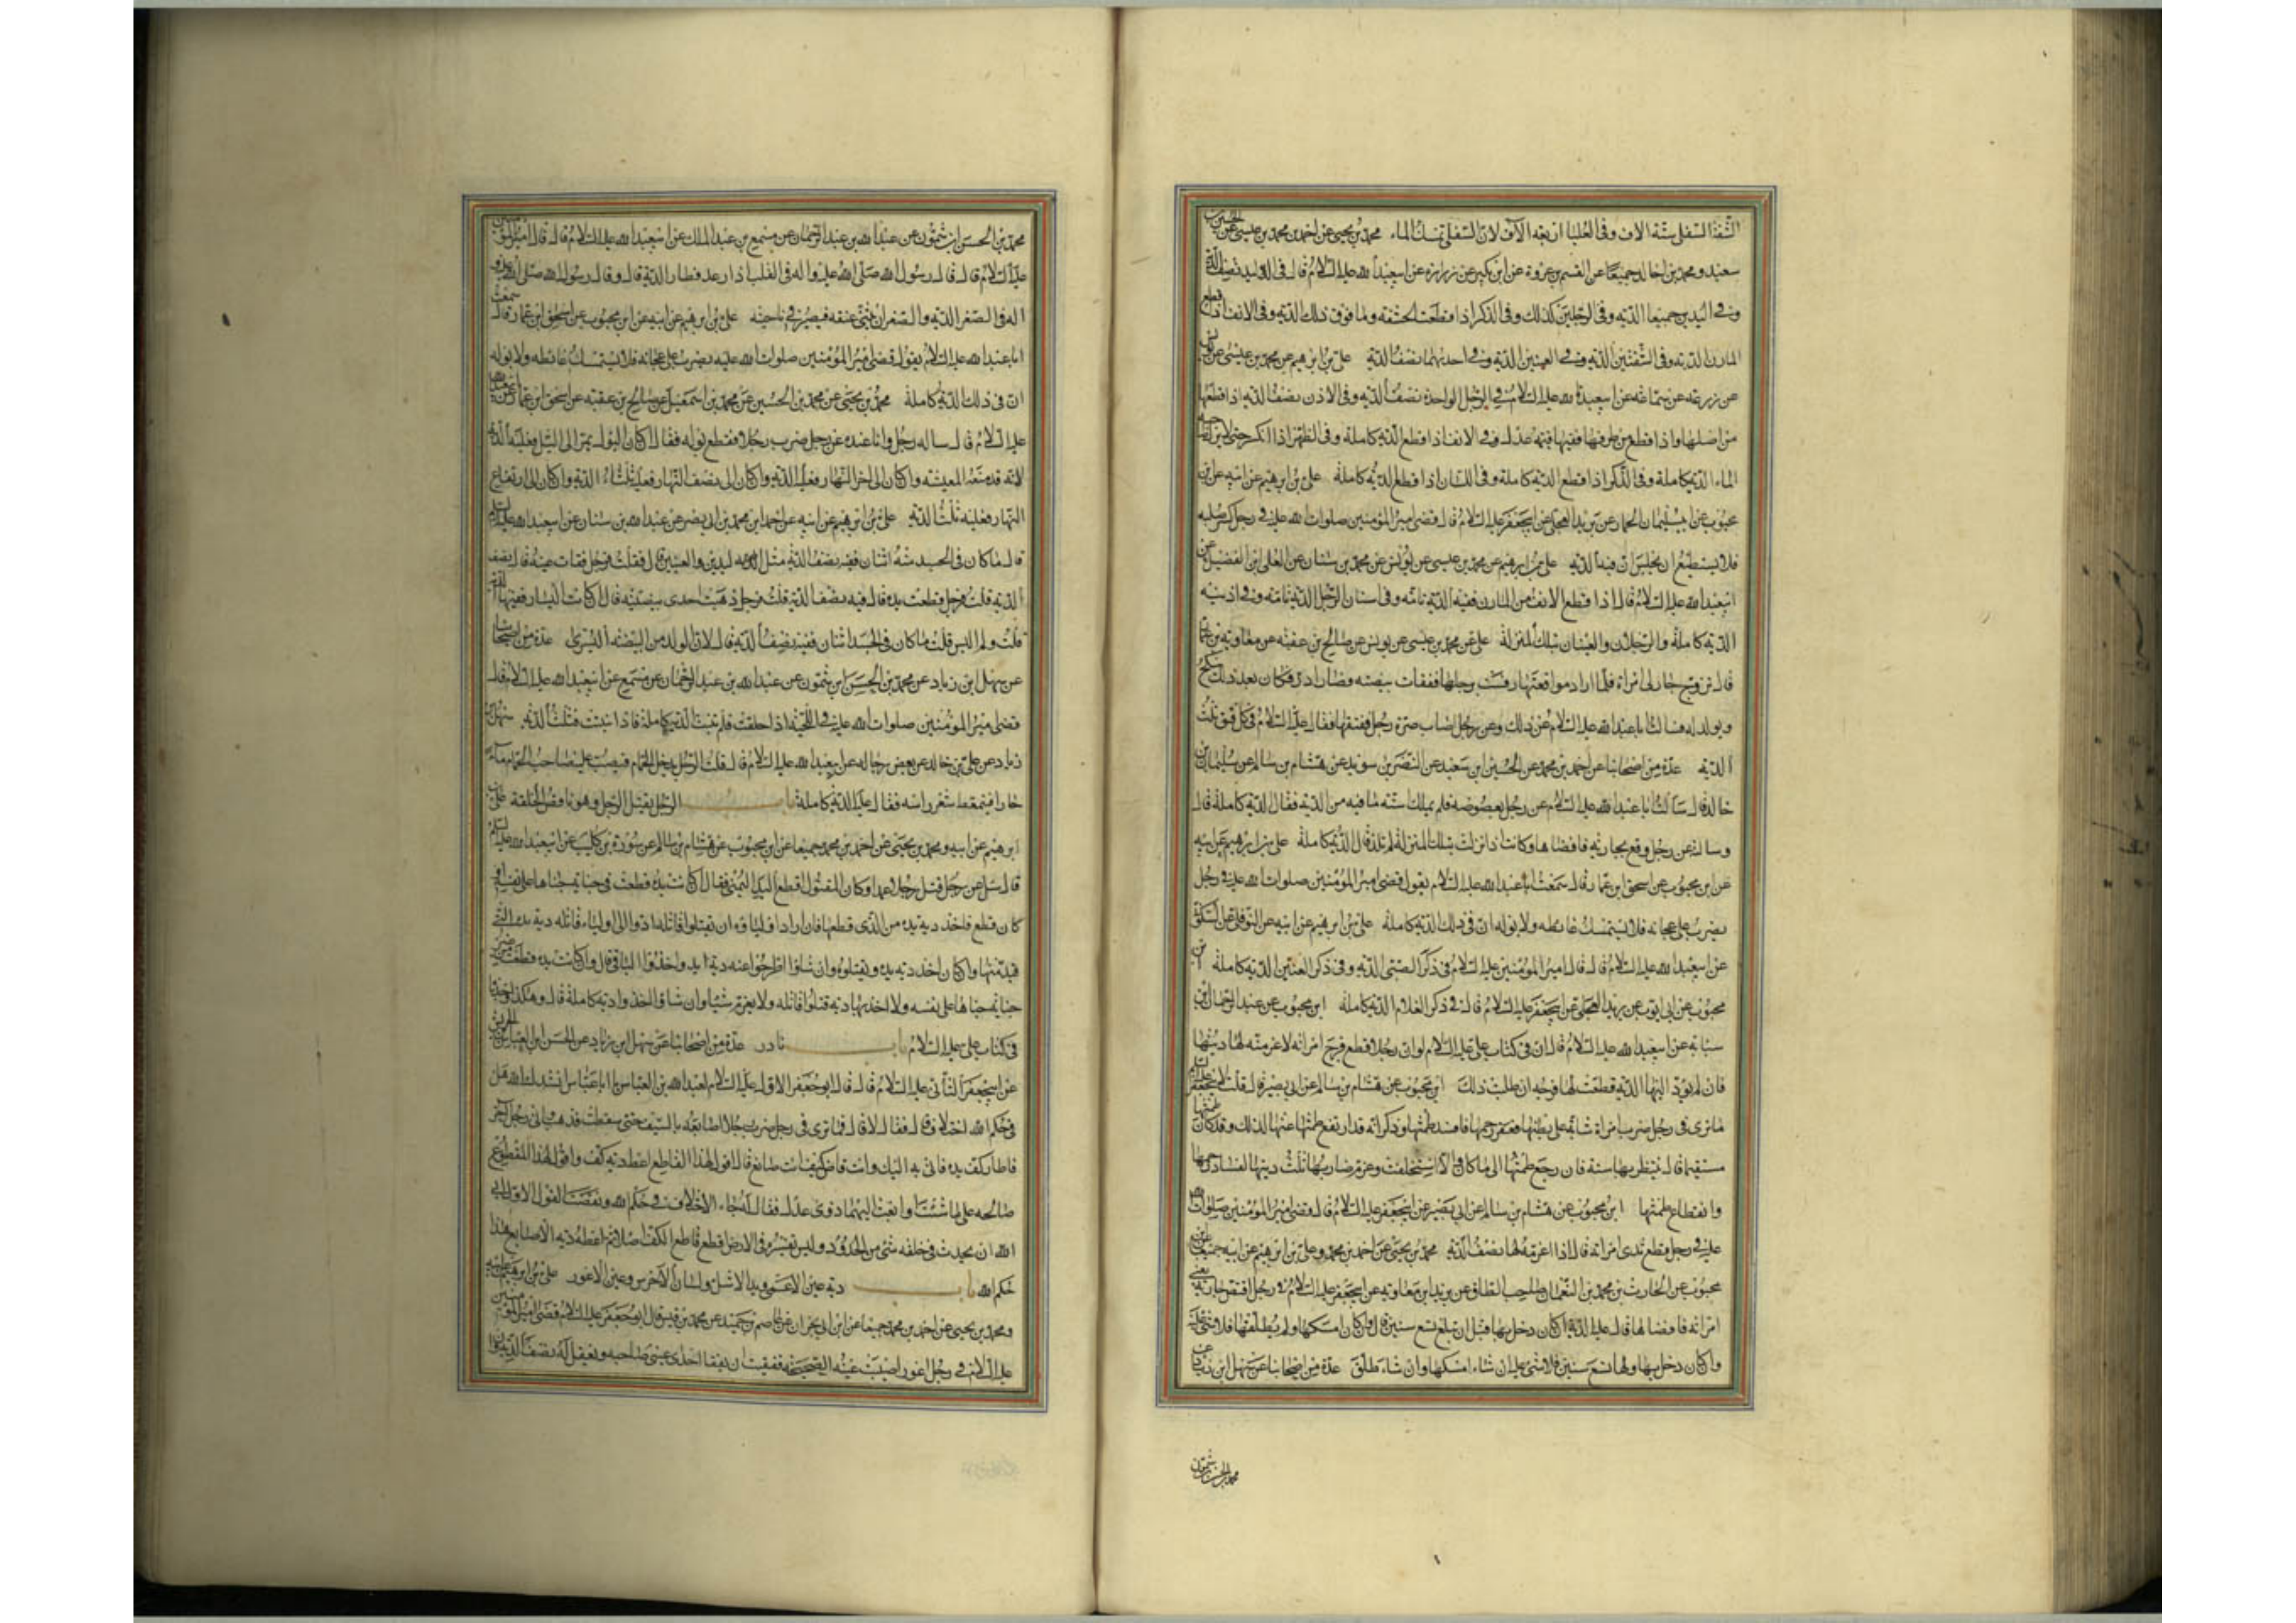 الشفة السفلى ستة الاف وفى العليا اربعة الآف لان السفلى تمسك الماء محمد بن يحيى عن احمد بن محمد بن عيسى عن الحسين بن
سعيد ومحمد بن خالد جميعا عن القسم بن عروة عن ابن بكير عن زرارة عن ابيعبد الله عليه السلام قال فى اليد نصف الدية
وفى اليدين جميعا الدية وفى الرجلين كذلك وفى الذكر اذا قطعت الحشفة وما فوق ذلك الدية وفى الانف اذا قطع
المارن الدية وفى الشفتين الدية وفى العينين الدية وفى احديهما نصف الدية على بن ابرهيم عن محمد بن عيسى عن يونس
عن زرعة عن سماعة عن ابيعبد الله عليه السلام فى الرجل الواحدة نصف الدية وفى الاذن نصف الدية اذا قطعها
من اصلها واذا قطع من طرفها ففيها قيمة عدل وفى الانف اذا قطع الدية كاملة وفى الظهر اذا انكسر حتى لا ينزل صاحبه
الماء الدية كاملة وفى الذكر اذا قطع الدية كاملة وفى اللسان اذا قطع الدية كاملة على بن ابرهيم عن ابيه عن ابن
محبوب عن ابى سليمان الحمار عن بريد العجلى عن ابيجعفر عليه السلام قال قضى امير المؤمنين صلوات الله عليه فى رجل كسر صلبه
فلا يستطيع ان يجلس ان فيه الدية على بن ابرهيم عن محمد بن عيسى عن يونس عن محمد بن سنان عن العلى ابن الفضيل عن
ابيعبد الله عليه السلام قال اذا قطع الانف من المارن ففيه الدية تامة وفى اسنان الرجل الدية تامة وفى اذنيه
الدية كاملة والرجلان والعينان بتلك المنزلة على عن محمد بن عيسى عن يونس عن صالح بن عقبة عن معاوية بن عمار
قال تزوج جار لى امراة فلما اراد مواقعتها رفسته برجلها ففقات بيضته فصار ادر فكان بعد ذلك ينكح
ويولد له فسالت ابا عبد الله عليه السلام عن ذلك وعن رجل اصاب صرة رجل ففتقها فقال عليه السلام فى كل فتق ثلث
الدية عدة من اصحابنا عن احمد بن محمد عن الحسين ابن سعيد عن النضر بن سويد عن هشام بن سالم عن سليمان بن
خالد قال سالت ابا عبد الله عليه السلام عن رجل بعصوصه فلم يملك استه ما فيه من الدية فقال الدية كاملة قال
وسالته عن رجل وقع بجارية فافضاها وكانت اذا نزلت بتلك المنزلة لم تلد قال الدية كاملة على بن ابرهيم عن ابيه
عن ابن محبوب عن اسحق ابن عمار قال سمعت ابا عبد الله عليه السلام يقول قضى امير المؤمنين صلوات الله عليه فى رجل
يضرب على عجانه فلا يستمسك غائطه ولا بوله ان فى ذلك الدية كاملة على بن ابرهيم عن ابيه عن النوفلى عن السكونى
عن ابيعبد الله عليه السلام قال قال امير المؤمنين عليه السلام فى ذكر الصبى الدية وفى ذكر العنين الدية كاملة ابن
محبوب عن ابى ايوب عن بريد العجلى عن ابيجعفر عليه السلام قال فى ذكر الغلام الدية كاملة ابن محبوب عن عبد الرحمان ابن
سيابة عن ابيعبد الله عليه السلام قال ان فى كتاب على عليه السلام لو ان رجلا قطع فرج امراته لاغرمنه لها ديتها
فان لم يود اليها الدية قطعت لها فرجه ان طلبت ذلك ابن محبوب عن هشام بن سالم عن ابى بصير قال قلت لابيجعفر عليه السلم
ما ترى فى رجل ضرب امراة شابة على بطنها فعقر رحمها فافسد طمثها وذكرت انه قد ارتفع طمثها عنها لذلك وقد كان طمثها
مستقيما قال ينتظر بها سنة فان رجع طمثها الى ما كان والا استحلفت وغرم ضاربها ثلث ديتها لفساد رحمها
وانقطاع طمثها ابن محبوب عن هشام بن سالم عن ابى بصير عن ابيجعفر عليه السلام قال قضى امير المؤمنين صلوات الله
عليه فى رجل قطع ثدى امراته قال اذا اغرمه لها نصف الدية محمد بن يحيى عن احمد بن محمد وعلى بن ابرهيم عن ابيه جميعا عن ابن
محبوب عن الحارث بن محمد بن النعمان صاحب الطاق عن بريد ابن معاوية عن ابيجعفر عليه السلام فى رجل افتض جارية يعنى
امراته فافضاها قال عليه الدية ان كان دخل بها قبل ان تبلغ تسع سنين قال وان كان امسكها ولم يطلقها فلا شئ عليه
وان كان دخل بها ولها تسع سنين فلا شئ عليه ان شاء امسكها وان شاء طلق عدة من اصحابنا عن سهل ابن زياد عن
محمد بن الحسن بن شمون
محمد بن الحسن ابن شمون عن عبد الله بن عبد الرحمان عن مسمع بن عبد الملك عن ابيعبد الله عليه السلام قال قال امير المؤمنين
عليه السلام قال قال رسول الله صلى الله عليه واله فى القلب اذا رعد فطار الدية قال وقال رسول الله صلى الله عليه و
اله فى الصعر الدية والصعر ان يثنى عنقه فيصير فى ناحية على بن ابرهيم عن ابيه عن ابن محبوب عن اسحق ابن عمار قال سمعت
ابا عبد الله عليه السلام يقول قضى امير المؤمنين صلوات الله عليه يضرب على عجانه فلا يستمسك غائطه ولا بوله
ان فى ذلك الدية كاملة محمد بن يحيى عن محمد بن الحسين عن محمد بن اسمعيل عن صالح بن عقبة عن اسحق ابن عمار عن ابيعبد الله
عليه السلام قال ساله رجل وانا عنده عن رجل ضرب رجلا فقطع بوله فقال ان كان البول يمر الى الليل فعليه الدية
لانه قد منعه المعيشة وان كان الى اخر النهار فعليه الدية وان كان الى نصف النهار فعليه ثلثاء الدية وان كان الى ارتفاع
النهار فعليه ثلث الدية على بن ابرهيم عن ابيه عن احمد ابن محمد بن ابى نصر عن عبد الله بن سنان عن ابيعبد الله عليه السلم
قال ما كان فى الجسد منه اثنان ففيه نصف الدية مثل اليدين والعينين قال فقلت فرجل فقات عينه قال نصف
الدية قلت فرجل قطعت يده قال فيه نصف الدية قلت فرجل ذهبت احدى بيضتيه قال ان كانت اليسار ففيها الدية
قلت ولم اليس قلت ما كان فى الجسد اثنان ففيه نصف الدية قال لان الولد من البيضة اليسرى عدة من اصحابنا
عن سهل ابن زياد عن محمد بن الحسن ابن شمون عن عبد الله بن عبد الرحمان عن مسمع عن ابيعبد الله عليه السلام قال
قضى امير المؤمنين صلوات الله عليه فى اللحية اذا حلقت فلم تنبت الدية كاملة فاذا نبتت فثلث الدية سهل بن
زياد عن على بن خالد عن بعض رجاله عن ابيعبد الله عليه السلام قال قلت الرجل يدخل الحمام فيصب عليه صاحب الحمام ماء
حارا فيتمعط شعر راسه فقال عليه الدية كاملة باب الرجل يقتل الرجل وهو ناقص الخلقة على بن
ابرهيم عن ابيه ومحمد بن يحيى عن احمد بن محمد جميعا عن ابن محبوب عن هشام بن سالم عن سورة بن كليب عن ابيعبد الله عليه السلم
قال سئل عن رجل قتل رجلا عمدا وكان المقتول اقطع اليد اليمنى فقال ان كانت يده قطعت فى جناية جناها على نفسه او
كان قطع فاخذ دية يده من الذى قطعها فان اراد اولياؤه ان يقتلوا قاتله ادوا الى اولياء قاتله دية يده التى
قيد منها وان كان اخذ دية يده ويقتلوه وان شاؤا طرحوا عنه دية يد واخذوا الباقى قال وان كانت يده قطعت من غير
جناية جناها على نفسه ولا اخذ بها دية قتلوا قاتله ولا يغرم شيئا وان شاؤا اخذوا دية كاملة قال وهكذا وجدنا
فى كتاب على عليه السلام باب نادر عدة من اصحابنا عن سهل ابن زياد عن الحسن ابن العباس بن الحريش
عن ابيجعفر الثانى عليه السلام قال قال ابو جعفر الاول عليه السلام لعبد الله بن العباس يا ابا عباس انشدك الله هل
فى حكم الله اختلاف قال فقال لا قال فما ترى فى رجل ضرب رجلا اصابعه بالسيف حتى سقطت فذهبت واتى رجل اخر
فاطار كف يده فاتى به اليك وانت قاض كيف انت صانع قال اقول لهذا القاطع اعطه دية كف واقول لهذا المقطوع
صالحه على ما شئت وابعث اليهما ذوى عدل فقال له جاء الاختلاف فى حكم الله ونقضت القول الاول ابى
الله ان يحدث فى خلقه شئ من الحدود وليس تفسيره فى الارض اقطع قاطع الكف اصلا ثم اعطه دية الاصابع هذا
حكم الله باب دية عين الاعمى ويد الاشل ولسان الاخرس وعين الاعور على بن ابرهيم عن ابيه
ومحمد بن يحيى عن احمد بن محمد جميعا عن ابن ابى نجران عن عاصم بن حميد عن محمد بن قيس قال قال ابو جعفر عليه السلام قضى امير المؤمنين
عليه السلام فى رجل اعور اصيبت عينه الصحيحة ففقئت ان يفقا احدى عينى صاحبه ويعقل له نصف الدية